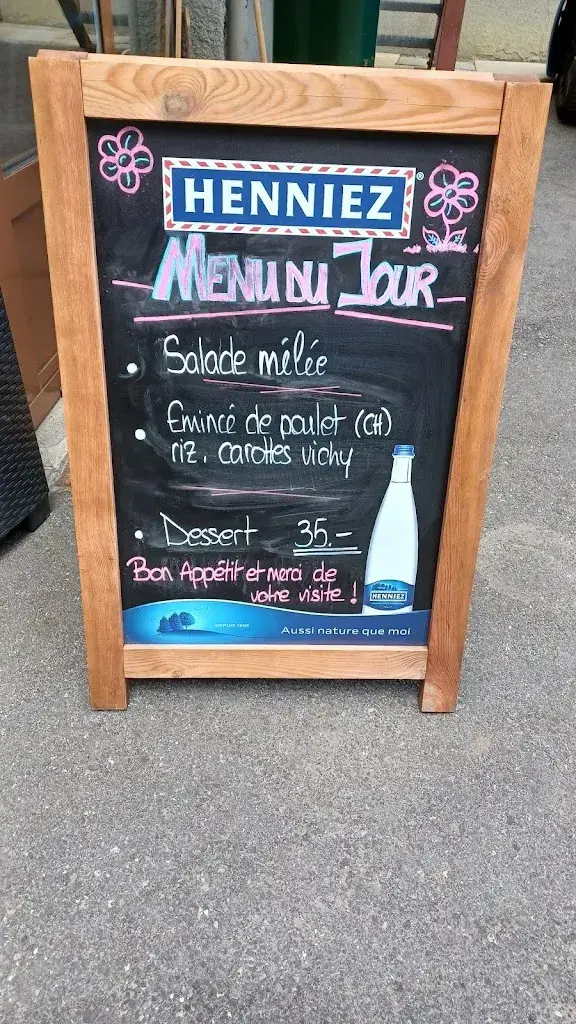 HENNIEZ®
MENU DU JOUR
• Salade mêlée
• Emincé de poulet (CH)
riz, carottes vichy
• Dessert 35.-
Bon Appétit et merci de
votre visite !
HENNIEZ
DEPUIS 1905
Aussi nature que moi